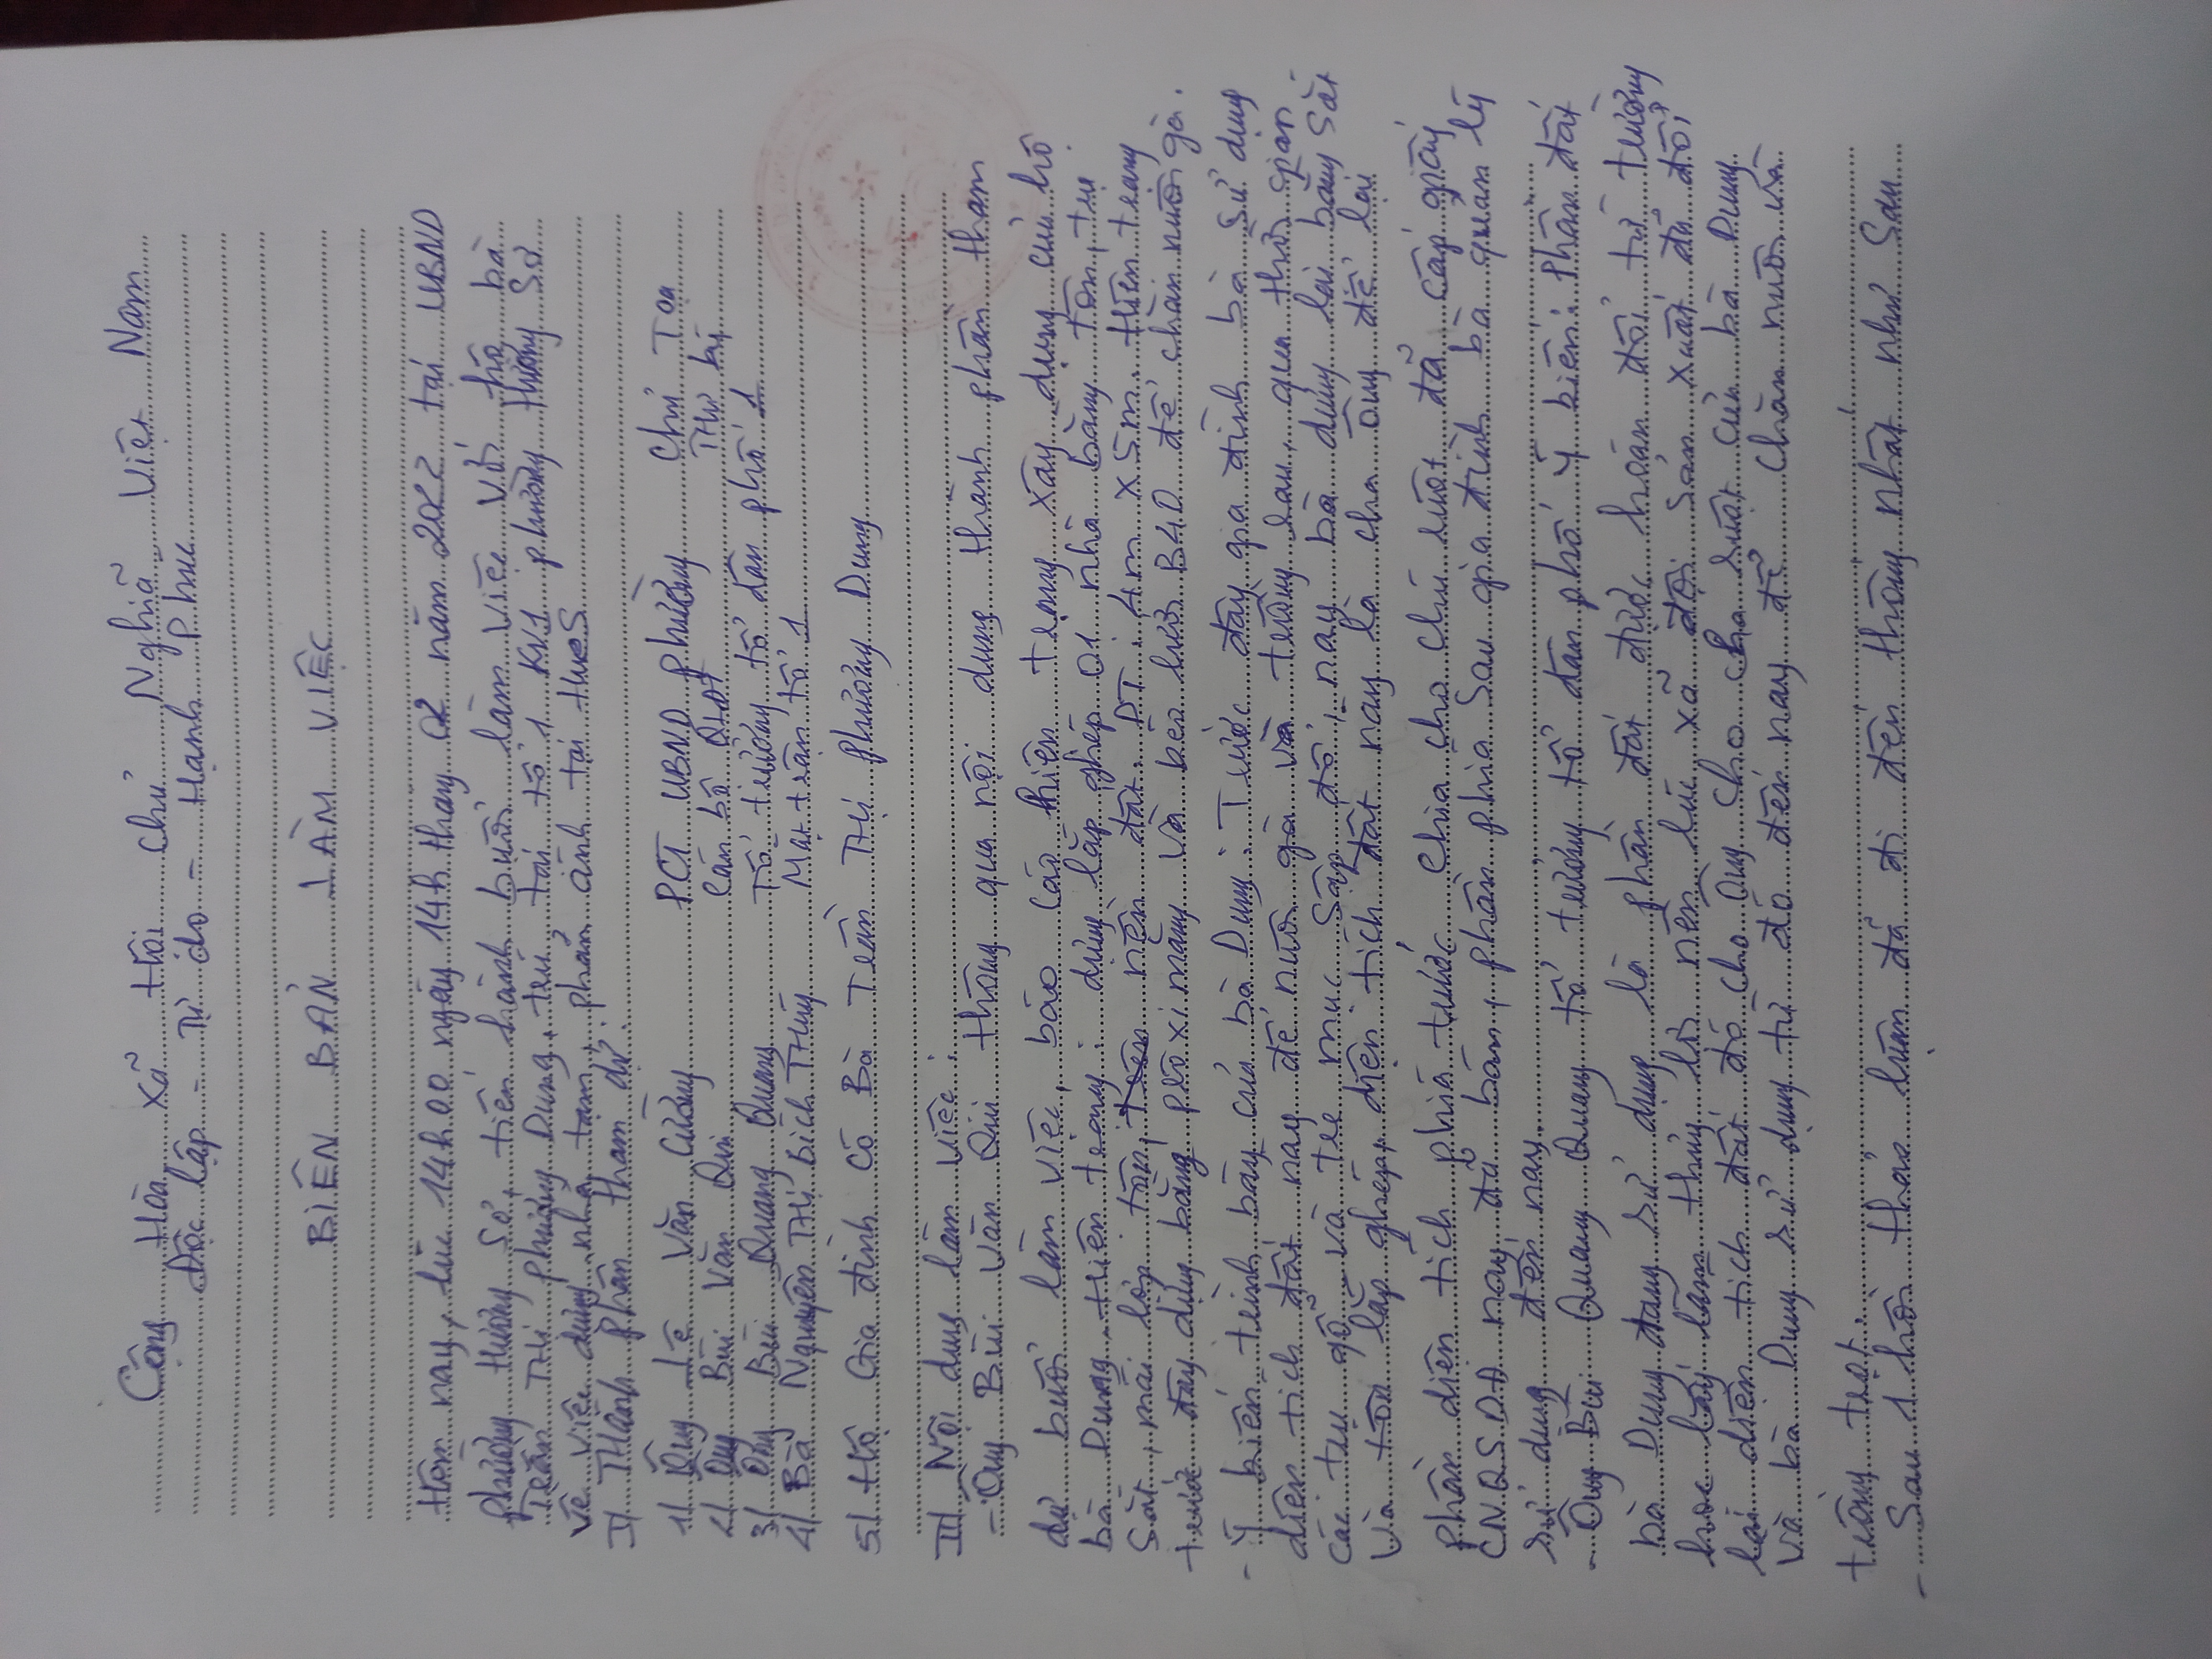 Cộng Hòa Xã Hội Chủ Nghĩa Việt Nam
Độc lập - Tự do - Hạnh Phúc
BIÊN BẢN LÀM VIỆC
Hôm nay, lúc 14h00 ngày 14h tháng 02 năm 2022 tại UBND
phường Hương Sơ, tiến hành buổi làm việc với hộ bà
Trần Thị Phương Dung, trú tại tổ 1 KV1 phường Hương Sơ
về việc dựng nhà tạm, phản ánh tại HueS
I/ Thành phần tham dự:
1/ Ông Lê Văn Cường PCT UBND phường Chủ Tọa
2/ Ông Bùi Văn Qui Cán bộ Thư ký
3/ Ông Bùi Quang Quang Tổ trưởng tổ dân phố 1
4/ Bà Nguyễn Thị Bích Thủy Mặt trận tổ 1
5/ Hộ Gia đình có Bà Trần Thị Phương Dung
II/ Nội dung làm việc:
- Ông Bùi Văn Qui thông qua nội dung thành phần tham
dự buổi làm việc, báo cáo hiện trạng xây dựng của hộ
bà Dung. Hiện trạng: dựng lắp ghép 01 nhà bằng tôn, trụ
Sắt, mái lợp tôn, nền đất. DT: 4m x 5m. Hiện trạng
trước đây dựng bằng và kéo lưới B40 để chăn nuôi gà.
- Ý kiến trình bày của bà Dung: Trước đây gia đình bà sử dụng
diện tích đất nay để nuôi gà và trồng rau, qua thời gian
các trụ gỗ và tre mục sập đổ, nay bà dựng lại bằng Sắt
và tôn lắp ghép, diện tích đất nay là cha ông để lại
Phần diện tích phía trước chia cho cháu ruột đã cấp giấy
CNQSDĐ nay đã bán, phần phía Sau gia đình bà quản lý
sử dụng đến nay.
- Ông Bùi Quang Quang tổ trưởng tổ dân phố ý kiến: Phần đất
bà Dung đang sử dụng là phần đất được hoán đổi từ trường
học lấy làm nên lúc xã đội Sản xuất đã đổi
lại diện tích đất đó cho Ông cho cha ruột của bà Dung
và bà Dung sử dụng từ đó đến nay để chăn nuôi và
trồng trọt.
- Sau 1 hồi thảo luận đã đi đến thống nhất như Sau